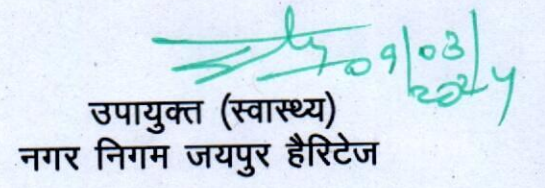 09/03/2024
उपायुक्त (स्वास्थ्य)
नगर निगम जयपुर हैरिटेज